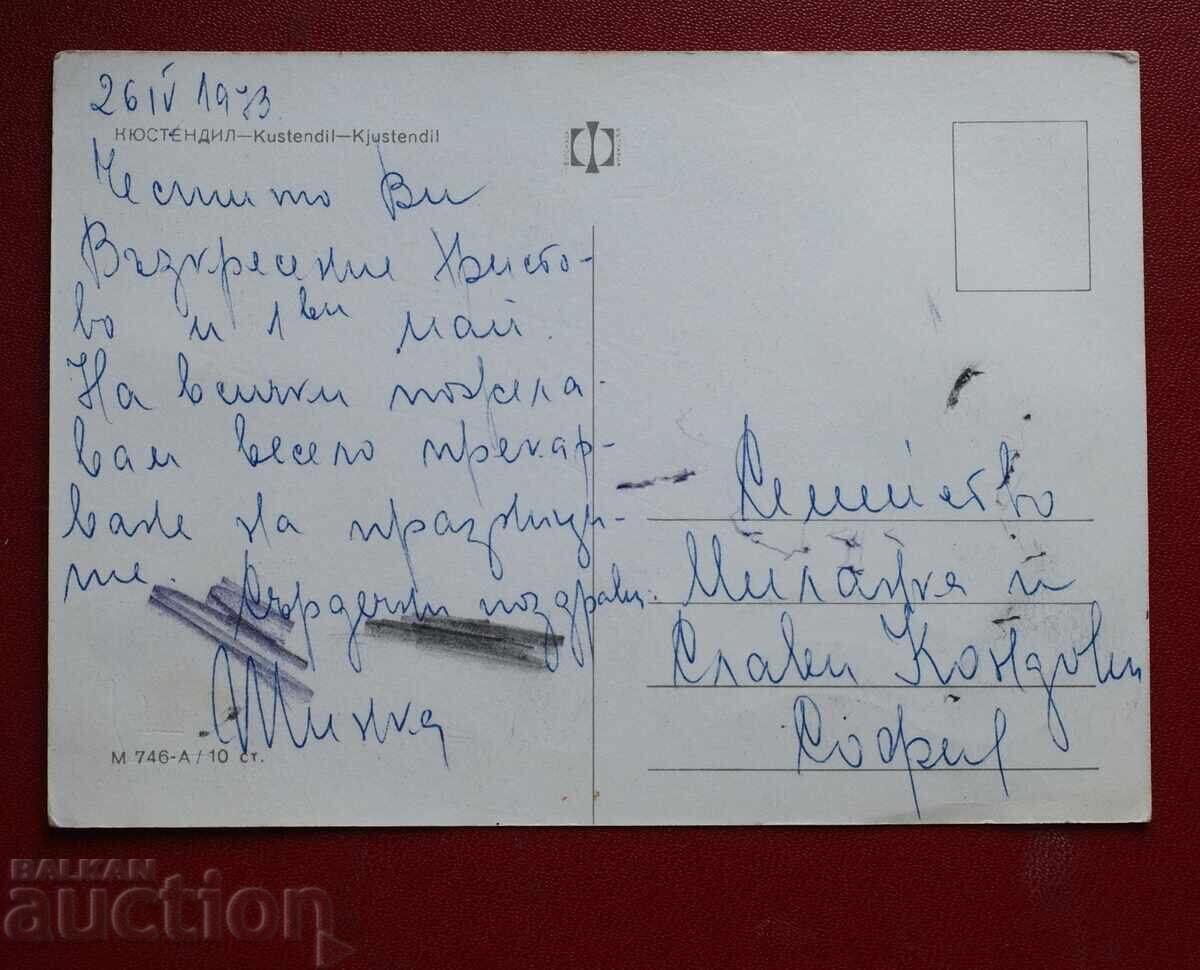 26 IV 1973
КЮСТЕНДИЛ—Kustendil—Kjustendil
Честито Ви
Възкресение Христо-
во и 1ви май.
На всички пожела-
вам весело прекар-
ване на празници-
те. Сърдечни поздрави.
Минка
М 746-А/10 ст.
Семейство
Миланка и
Слави Кондови
София
BALKAN
auction